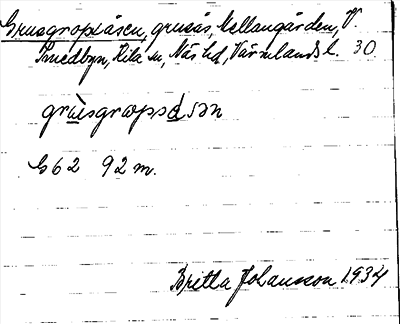 Grusgropsåsen, grusås, Mellangården, V.
Smedbyn, Hila sn, Näs hd, Värmlands l. 30
grùsgropsåsən
G 62 92 m.
Britta Johansson 1934